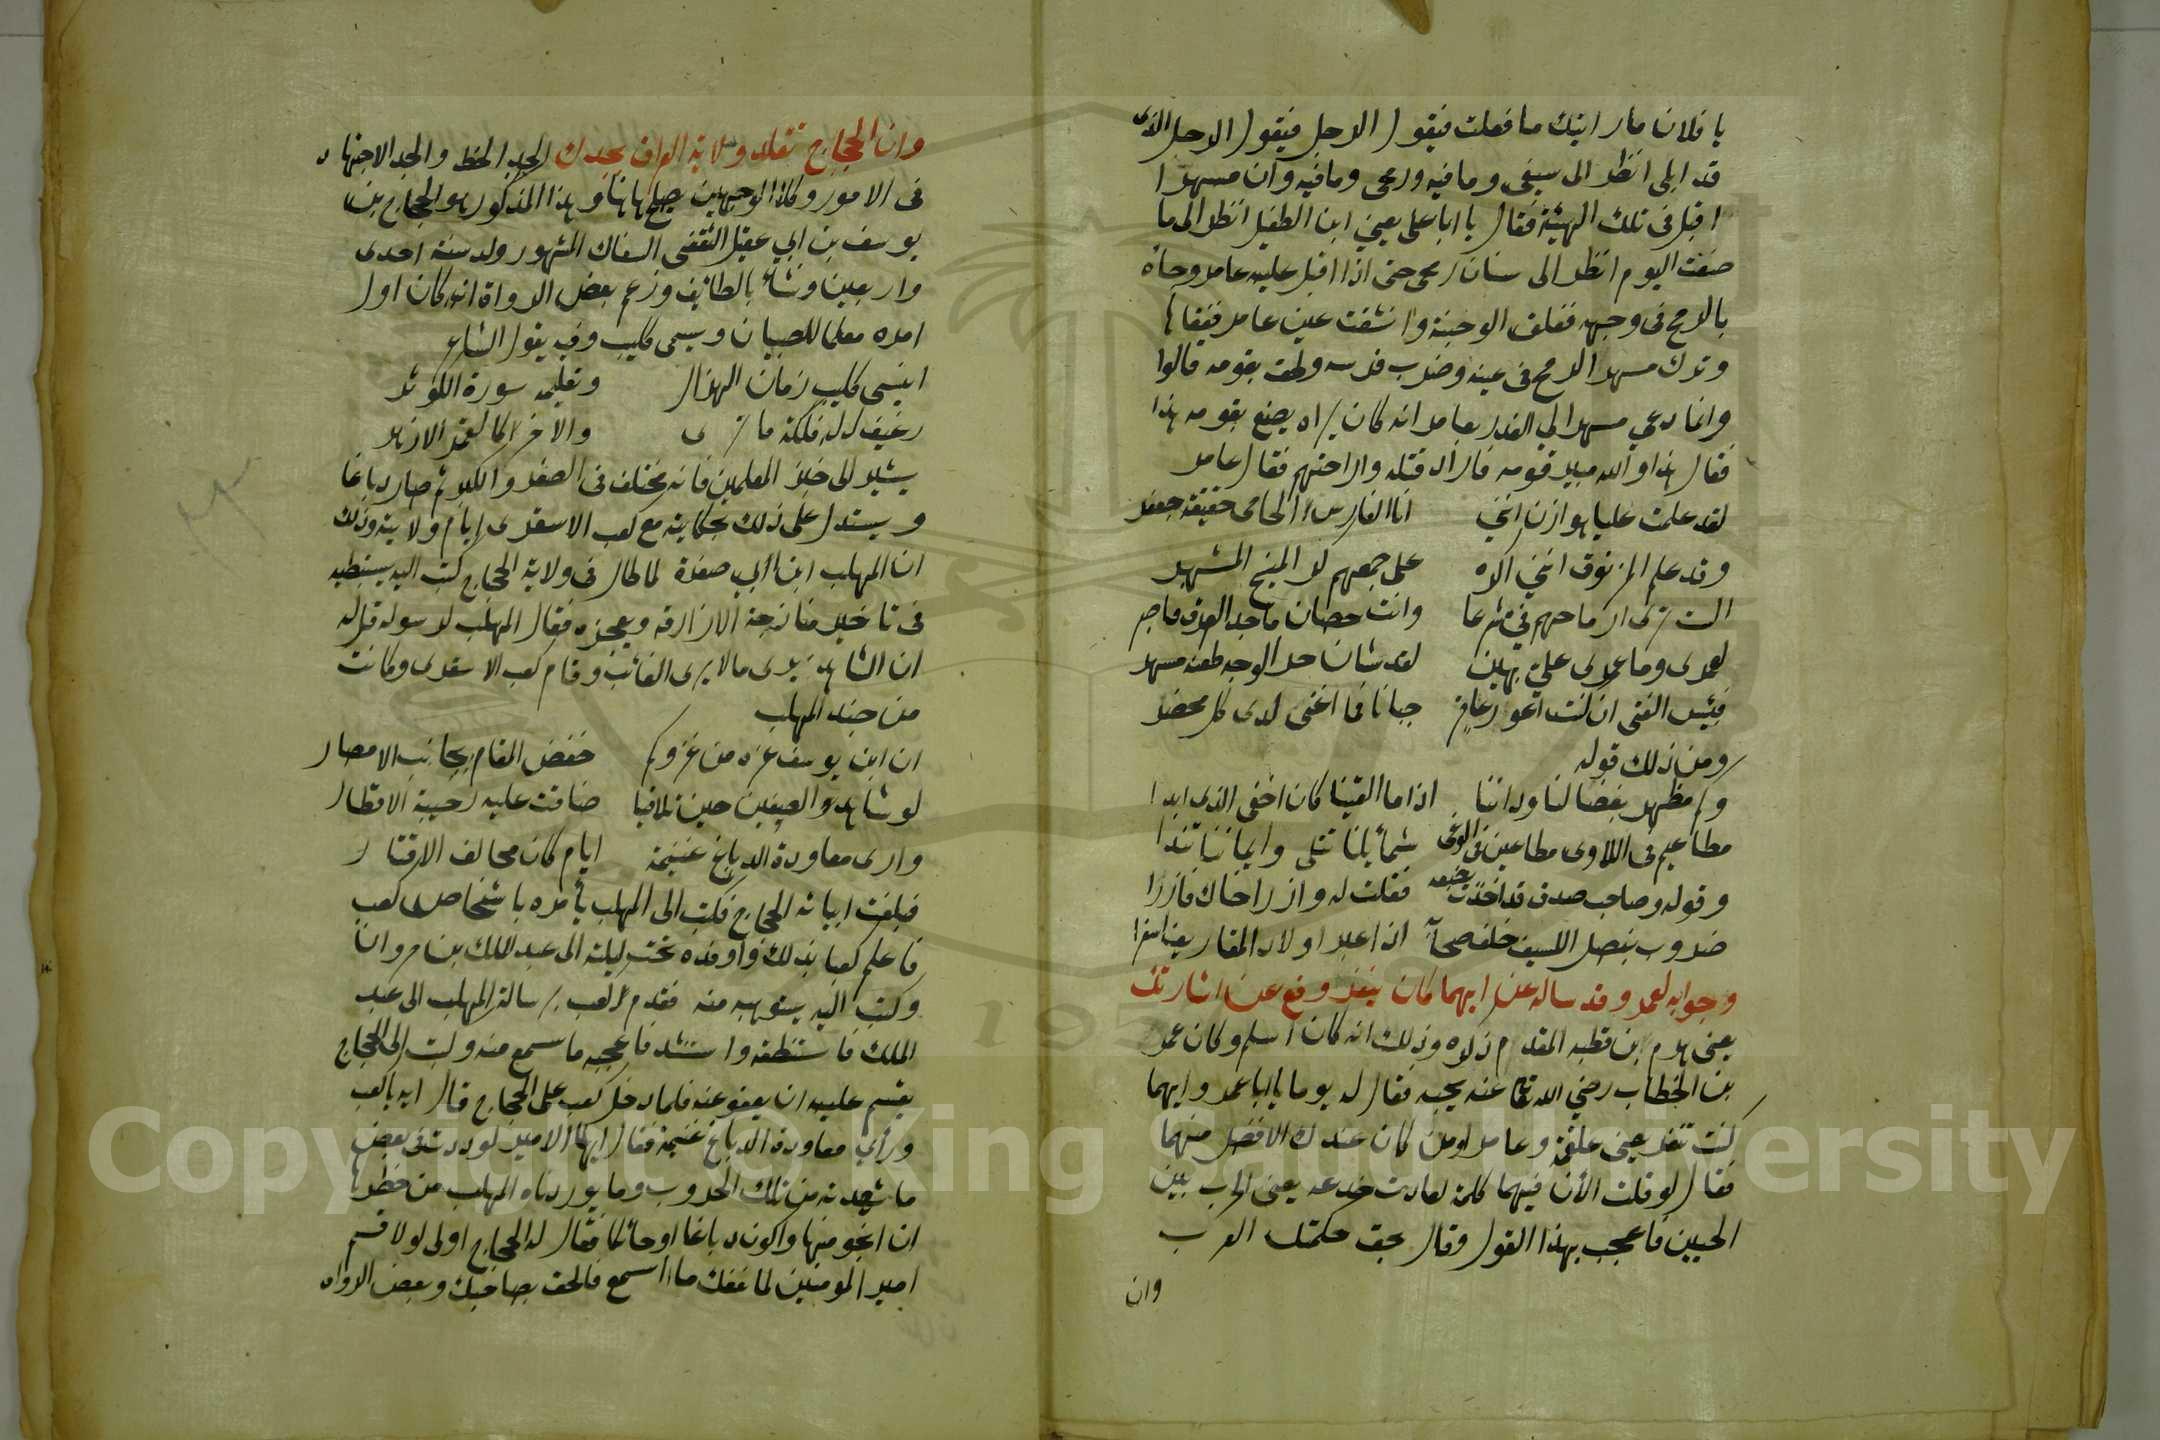 يا فلان ما رايتك ما فعلت فيقول الرجل فيقول الرجل الذى
قد ابلى انظر الى سيفى وما فيه ورمحى وما فيه وان مسهرا
اقبل فى تلك الهيئة فقال يا ابا على يعنى ابن الطفيل انظر الى ما
صنعت اليوم انظر الى سنان رمحى حتى اذا اقبل عليه عامر وجاه
بالرمح فى وجهه ففلق الوجنة وانشقت عين عامر ففقاها
وترك مسهر الرمح فى عينه وضرب فرسه ولحق بقومه قالوا
وانما دعى مسهرا الى الغدر بعامر انه كان يراه يصنع بقومه هذا
فقال هذا والله مبير قومه فاراد قتله واراحتهم فقال عامر
لقد علمت عليا هوازن اننى انا الفارس الحامى حقيقة جعفر
وقد علم المزنوق انى اكره على جمعهم كر المنيح المشهر
الست ترى ارماحهم فى شرعا وانت حصان ماجد العرق فاصبر
لعمرى وما عمرى على بهين لقد شان حر الوجه طعنة مسهر
فبئس الفتى ان كنت اعور عاقر جبانا فما اغنى لدى كل محضر
ومن ذلك قوله
وكم مظهر بغضا لنا ود اننا اذا ما التقينا كان اخفى الذى ابدا
مطاعيم فى اللاوى مطاعين فى الوغى شمائلنا تتلى وايماننا تندا
وقوله وصاحب صدق قد اخذت بضبعه فقلت له وازر اخاك فازرا
ضروب بنصل السيف
وجوابه لعمر وقد ساله عن ايهما كان ينفر وقع عن اشارتك
يعنى هرم بن قطبه المقدم ذكره وذلك انه كان اسلم وكان عمر
بن الخطاب رضي الله تعا عنه يحبه فقال له يوما يا ابا عمر وايهما
كنت تنفر يعنى علقمة وعامر او من كان عندك الافضل منهما
فقال لو قلت الأن فيهما كلمة لعادت جذعه يعنى الحرب بين
الحيين فاعجب بهذا القول وقال بحق حكمتك العرب
وان
وان الحجاج تقلد ولاية العراق بجدك الجد الحظ والجد الاجتهاد
فى الامور وكلا الوجهين يصلح هاهنا وهذا المذكور هو الحجاج بن
يوسف بن ابي عقيل الثقفى السفاك المشهور ولد سنة احدى
واربعين ونشأ بالطائف وزعم بعض الرواة انه كان اول
امره معلما للصبيان ويسمى كليب وفيه يقول الشاعر
اينسى كليب زمان الهزال وتعليمه سورة الكوثر
رغيف له فلكة ما ترى والاخر كالقمر الازهر
يشير الى خبز المعلمين فانه مختلف فى الصغر والكبر ثم صار دباغا
ويستدل على ذلك بحكايته مع كعب الاسقرى ايام ولايته وذلك
ان المهلب ابن أبي صفرة لما طال فى ولاية الحجاج كتب اليه يستبطيه
فى تاخير مناجزة الازارقه ويعجزه فقال المهلب لرسوله قل له
ان الشاهد يرى ما لا يرى الغائب وقام كعب الاسقرى وكانت
من جند المهلب
ان ابن يوسف غره من غزوكم خفض المقام بجانب الامصار
لو شاهد الصفين حين تلاقيا ضاقت عليه رحيبة الاقطار
وارى معاودة الدباغ غنيمة ايام كان محالف الاقتار
فبلغت ابياته الحجاج فكتب الى المهلب يأمره باشخاص كعب
فاعلم كعبا بذلك واوفده تحت ليلته الى عبد الملك بن مروان
وكتب اليه يستوهبه منه فقدم كعب برسالة المهلب الى عبد
الملك فاستنطقه واستنشد فاعجبه ما سمع منه وكتب الى الحجاج
يقسم عليه ان يعفو عنه فلما دخل كعب على الحجاج قال ايه يا كعب
ورأى معاودة الدباغ غنيمة فقال ايها الامير لوددت فى بعض
ما شهدته من تلك الحروب وما يوردناه المهلب من خطرها
ان انجو منها واكون دباغا او حائكا فقال له الحجاج اولى لولا قسم
امير المومنين لما نفعك ما اسمع فالحق بصاحبك وبعض الرواه